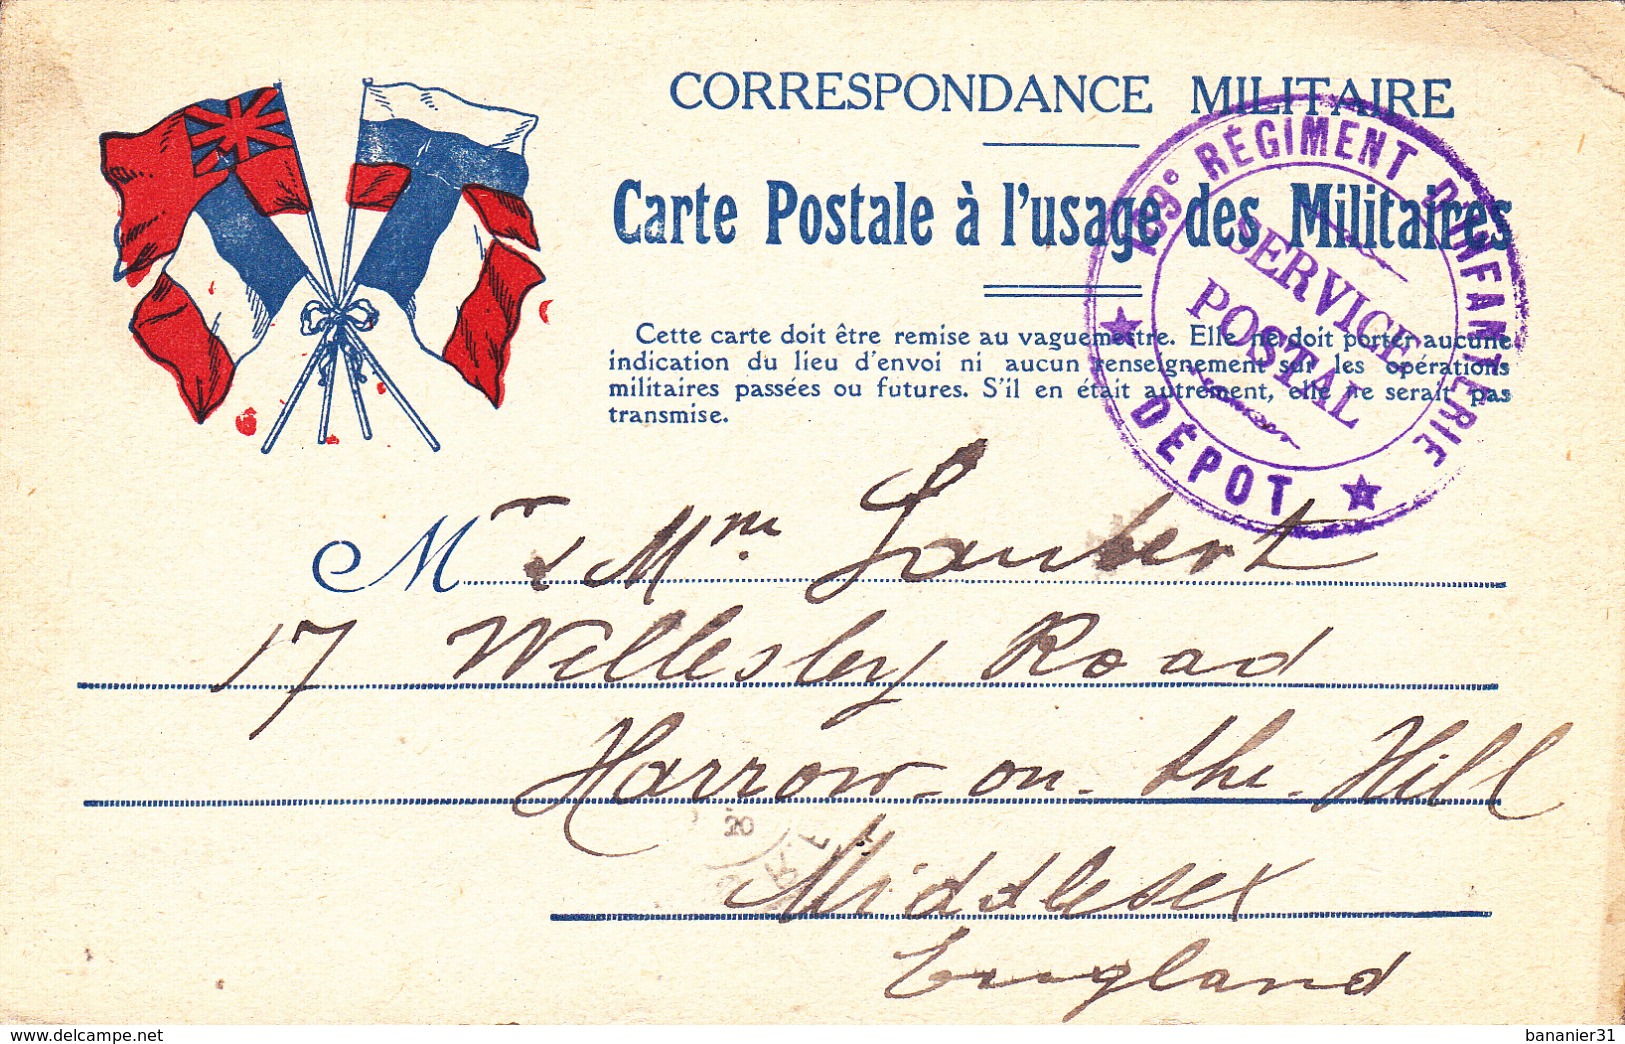 CORRESPONDANCE MILITAIRE
Carte Postale à l'usage des Militaires
Cette carte doit être remise au vaguemestre. Elle ne doit porter aucune
indication du lieu d'envoi ni aucun renseignement sur les opérations
militaires passées ou futures. S'il en était autrement, elle ne serait pas
transmise.
159e RÉGIMENT D'INFANTERIE
SERVICE
POSTAL
★ DÉPOT ★
Mr & Mme Lambert
17 Wellesley Road
Harrow-on-the-Hill
20
Middlesex
England
www.delcampe.net
bananier31